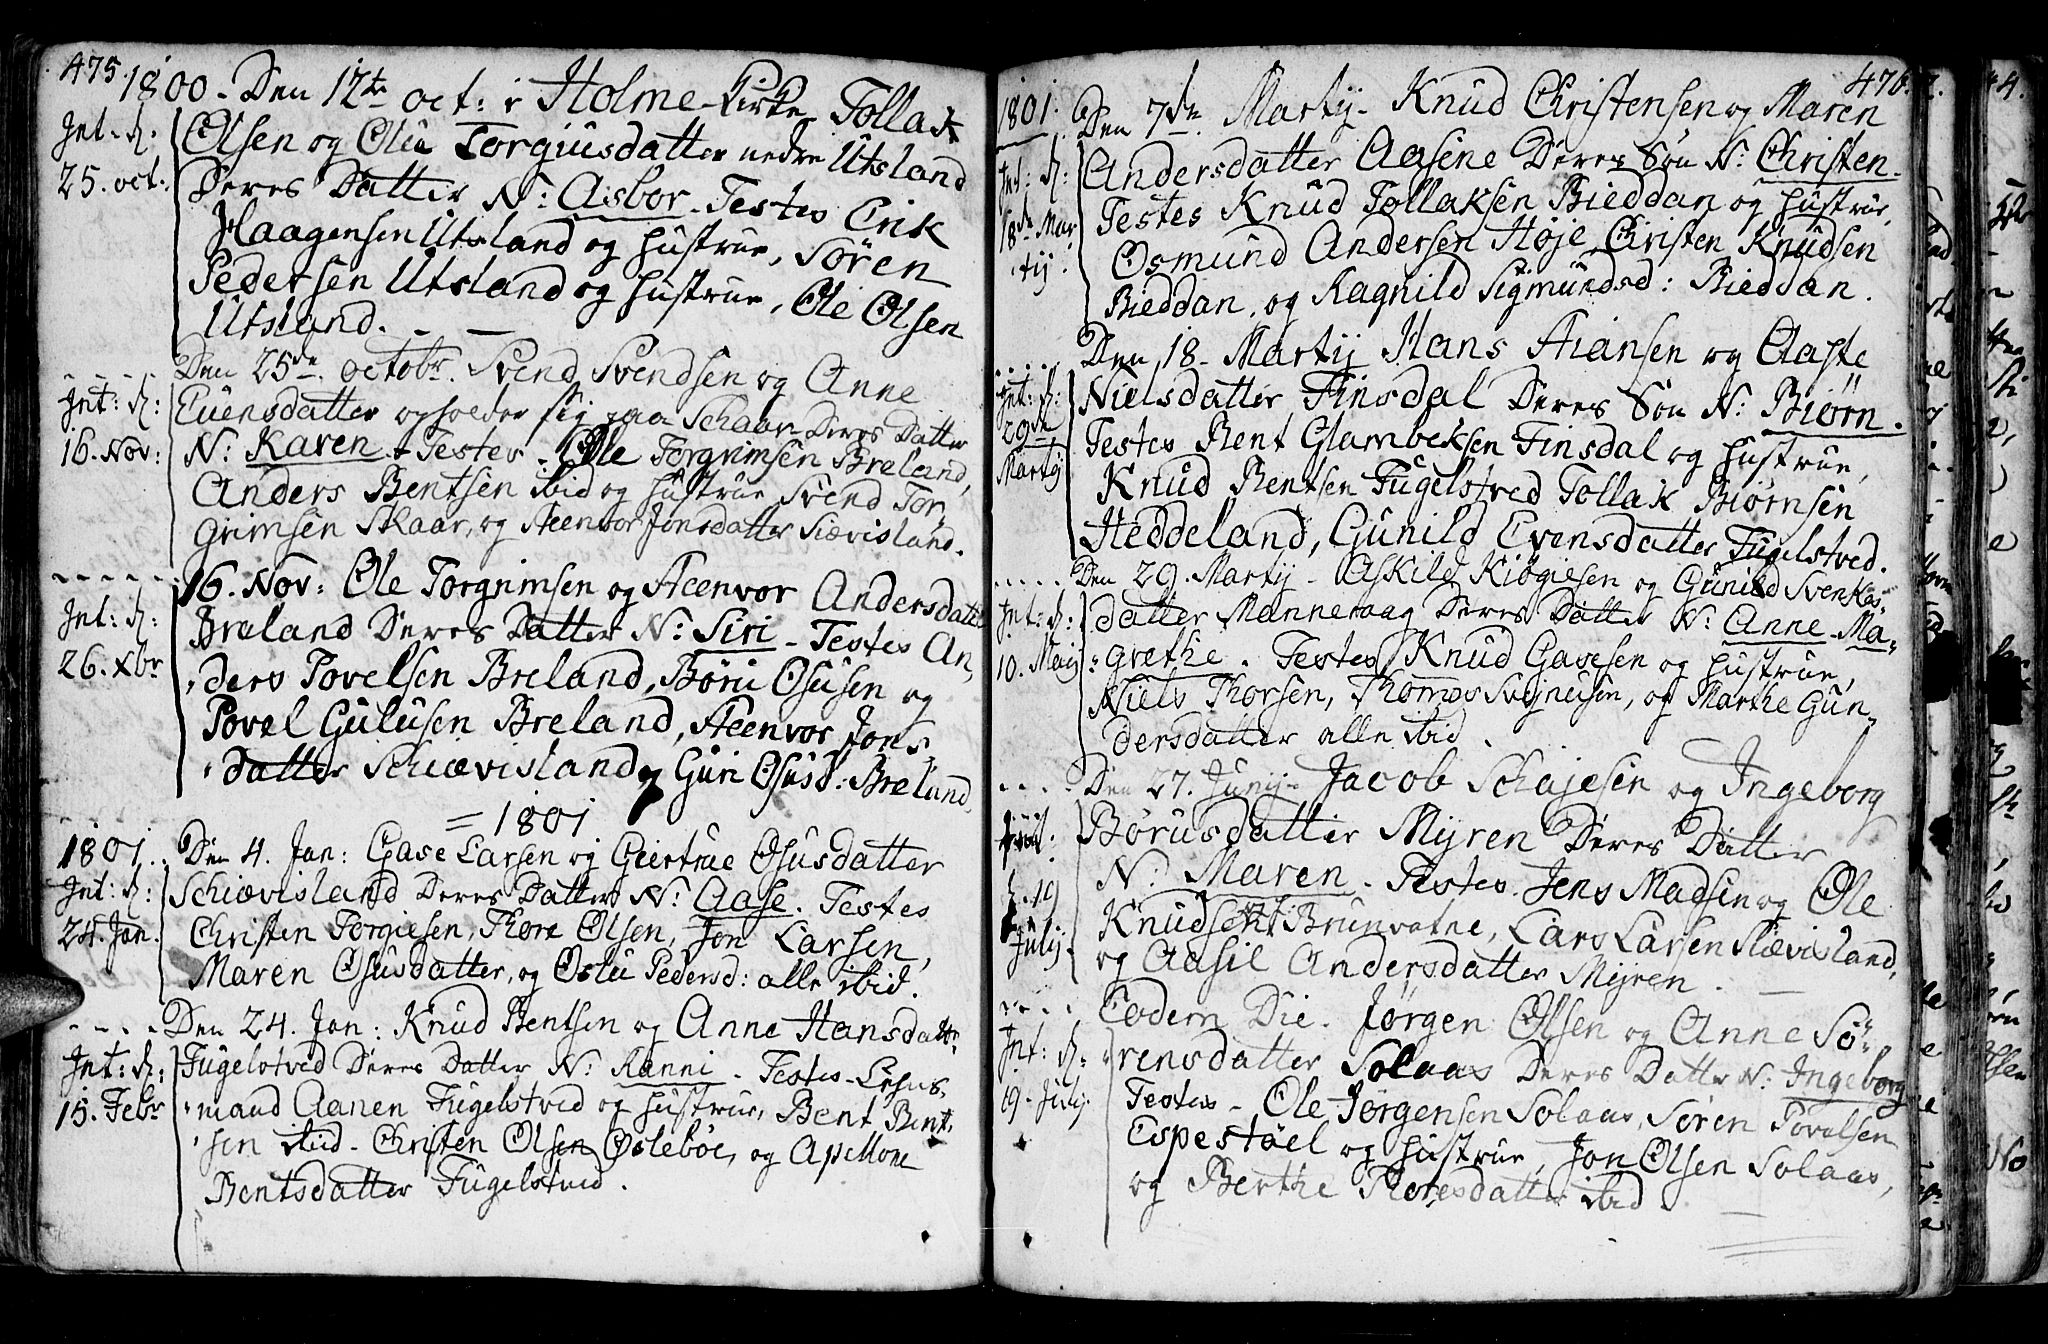 475. 1800. Den 12te oct: i Holme-Kirke Tollak
Int. R:
25. oct:
Olsen og Olu Torgiusdatter nedre Utsland
Deres Datter N: Asbor. Testes Erik
Haagensen Utsland og hustrue, Sören
Pedersen Utsland og hustrue, Ole Olsen
Utsland.
Den 25de octobr. Svend Svendsen og Anne
Int: R:
16. Nov:
Euensdatter opholder sig paa Schaar Deres Datter
N: Karen. Testes. Ole Torgrimsen Breland,
Anders Bentsen ibid og hustrue Svend Tor,
grimsen Skaar, og Steenvor Jonsdatter Siævisland.
16. Nov: Ole Torgrimsen og Steenvor Andersdatter
Int: R:
26. xbr
Breland Deres Datter N: Siri - Testes An,
ders Povelsen Breland, Böru Osusen og
Povel Gulusen Breland, Steenvor Jons
datter Schiævisland og Guri Osusd: Breland
= 1801
1801. Den 4. Jan: Gase Larsen og Geertrue Osusdatter
Int: R:
24. Jan.
Schiævisland Deres Datter N: Aase. Testes
Christen Torgiesen, Thore Olsen, Jon Larsen,
Maren Osusdatter, og Oslu Pedersd: alle ibid.
Den 24. Jan: Knud Bentsen og Anne Hansdattr
Int: R:
15. Febr
Fugelstved Deres Datter N: Ranni - Testes - Lehns,
mand Aanen Fugelstved og hustrue, Bent Bent,
sen ibid - Christen Olsen Osleböe, og Apellone
Bentsdatter Fugelstved.
476.
1801. Den 7de Martij - Knud Christensen og Maren
Int: R:
18de Mar
tij.
Andersdatter Aasene Deres Sön N: Christen.
Testes Knud Tollaksen Bieddan og hustrue,
Osmund Andersen Höje, Christen Knudsen
Bieddan, og Ragnild Sigmundsd: Bieddan.
Den 18. Martij Hans Aiansen og Aaste
Int: R:
29de
Martij
Nielsdatter Finsdal Deres Sön N: Biörn.
Testes Bent Glambeksen Finsdal og hustrue,
Knud Bentsen Fugelstved Tollak Biörnsen
Heddeland, Gunild Evensdatter Fugelstved.
Den 29. Martij - Askild Kiögiesen og Gunild Svenkes,
Int: R:
10. Maij
datter Manneraag Deres Datter N: Anne Ma,
grethe. Testes Knud Gasesen og hustrue,
Niels Thorsen, Thomes Svejnusen, og Marthe Gun,
dersdatter alle ibid.
Den 27. Junij - Jacob Schajesen og Ingeborg
19
Julij
Börusdatter Myren Deres Datter
N: Maren. Testes. Jens Madsen og Ole
Knudsen Brunvatne, Lars Larsen Siævisland,
og Aasil Andersdatter Myren.
Eodem Die. Jörgen Olsen og Anne Sö,
Int: R:
19. Julij
rensdatter Solaas Deres Datter N: Ingeborg
Testes - Ole Jörgensen Solaas, Sören Povelsen
Espestöel og hustrue, Jon Olsen Solaas,
og Berthe Thoresdatter ibid.